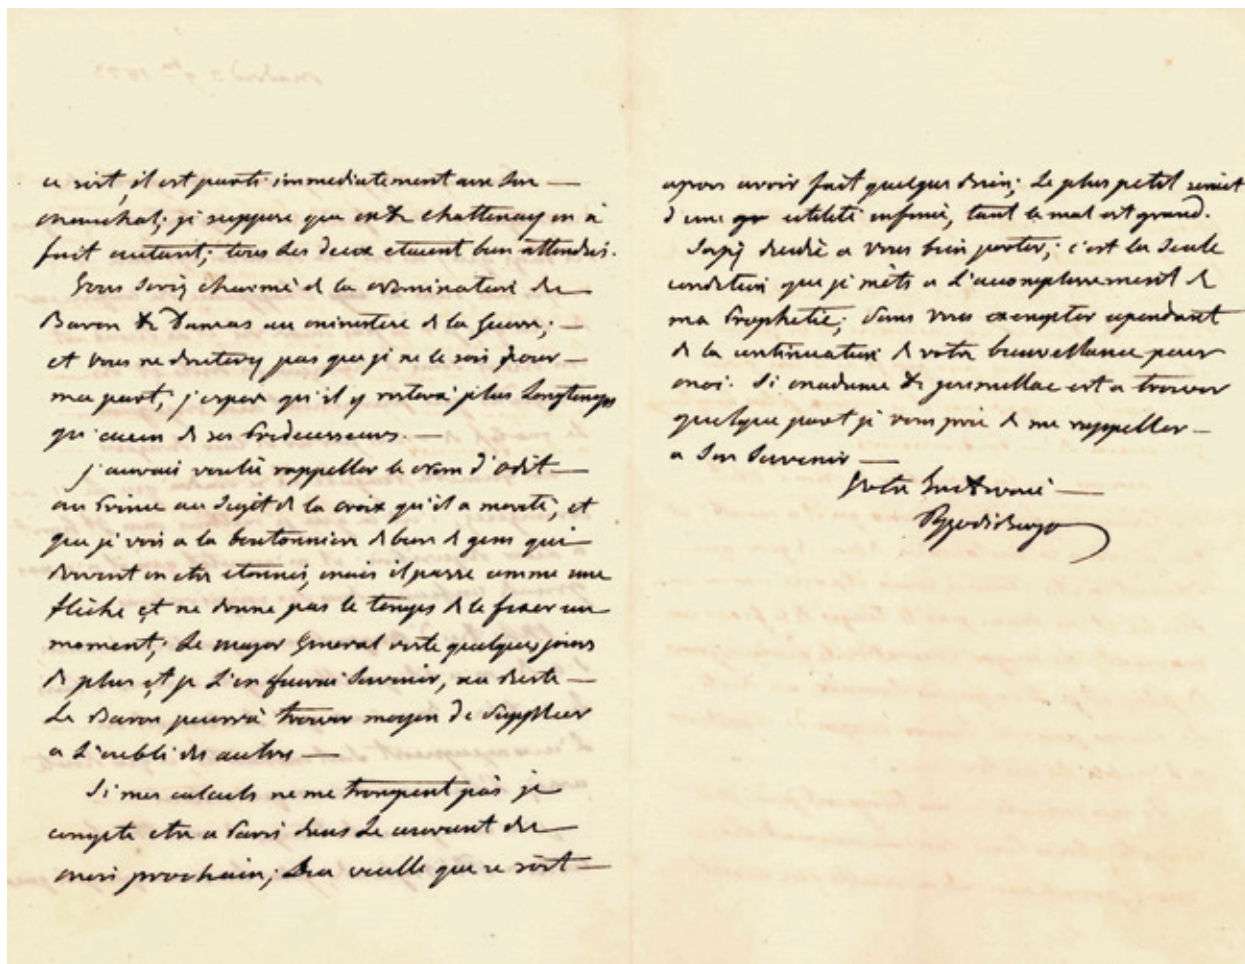 ce soit, il est parti immediatement avec son —
marechal; je suppose que Mr de Chattenay en à
fait autant; tous les deux etaient bien attendus.
Vous serez charmé de la nomination du
Baron de Damas au ministere de la Guerre; —
et vous ne douterez pas que je ne le sois pour —
ma part; j'espere qu'il y restera plus Longtemps
qu'aucun de ses Predecesseurs. —
j'aurais voulu rappeller le nom d'
au Prince au sujet de la croix qu'il a merité, et
que je vois a la boutonniere de bien de gens qui
doivent en etre etonnés, mais il passe comme une
flêche et ne donne pas le temps de le fixer un
moment; Le major General reste quelques jours
de plus et je L'en ferai souvenir, au reste —
Le Baron pourra trouver moyen de suppleer
a L'oubli des autres —
Si mes calculs ne me trompent pas je
compte etre a Paris dans Le courant du
mois prochain; que ce soit —
apres avoir fait quelque bien; Le plus petit serait
d'une utilité infinie, tant le mal est grand.
a vous bien porter; c'est la seule
condition que je mets a L'accomplissement de
ma Prophetie; sans vous excepter cependant
de la continuation de votre bienveillance pour
moi. Si madame de est a trouver
quelque part je vous prie de me rappeller —
a son souvenir —
Votre —
Pozzo di Borgo